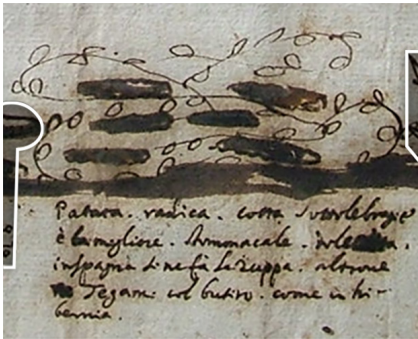 Patata. radica. cotta sottolebragie
è la migliore. Stomacale.
in spagna si ne fà la zuppa. altroue
Tegam. col butiro. come in hi-
bernia.